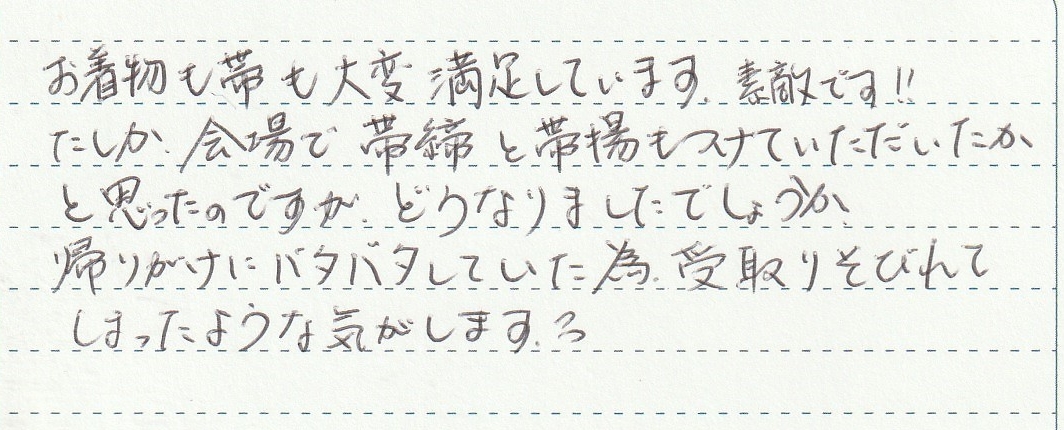 お着物も帯も大変満足しています。素敵です!!
たしか、会場で帯締と帯揚もつけていただいたか
と思ったのですが、どうなりましたでしょうか、
帰りがけにバタバタしていた為、受取りそびれて
しまったような気がします。